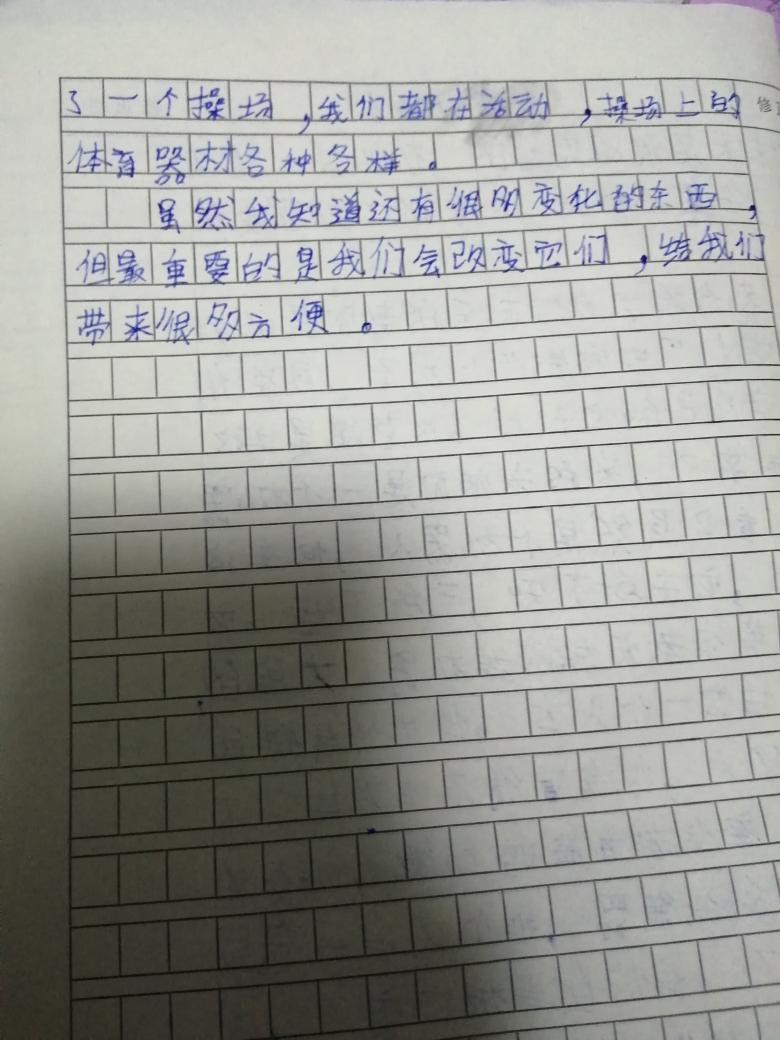 了一个操场，我们都在活动，操场上的
体育器材各种各样。
虽然我知道还有很多变化的东西，
但最重要的是我们会改变它们，给我们
带来很多方便。
修